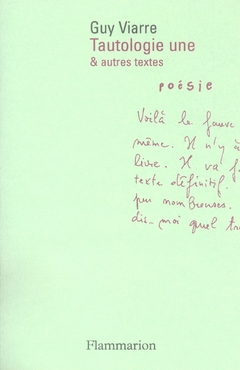 Guy Viarre
Tautologie une
& autres textes
poésie
Voilà le fauve
même. Il n'y a
livre. Il va f
texte définitif.
peu nombreuses.
dis-moi quel tra
Flammarion